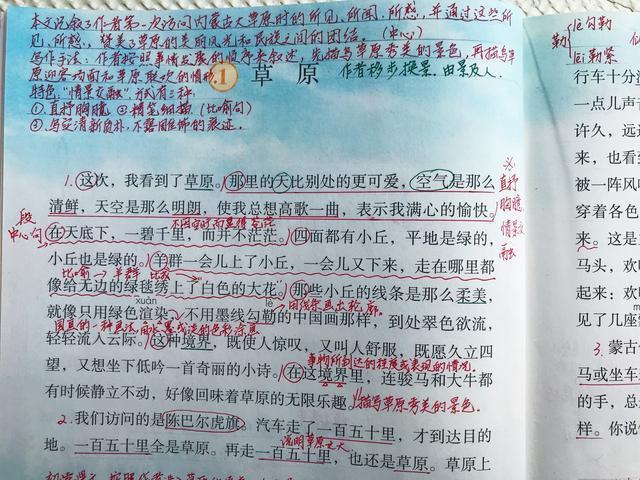 本文记叙了作者第一次访问内蒙古大草原时的所见、所闻、所感,并通过这些所
见、所感,赞美了草原的美丽风光和民族之间的团结。(中心)
写作手法:作者按照事情发展的顺序来叙述,先描写草原秀美的景色,再描写草
原迎客场面和草原联欢的情形。 作者移步换景,由景及人。
特色:"情景交融",方式有三种。
①直抒胸臆 ②精笔细描(比喻句)
③写实清新自朴,不露雕饰的痕迹。
1 草原
1.这次,我看到了草原。那里的天比别处的更可爱,空气是那么
清鲜,天空是那么明朗,使我总想高歌一曲,表示我满心的愉快。
直抒胸臆,情景交融
段中心句
在天底下,一碧千里,而并不茫茫。四面都有小丘,平地是绿的,
小丘也是绿的。羊群一会儿上了小丘,一会儿又下来,走在哪里都
比喻 羊群
像给无边的绿毯绣上了白色的大花。那些小丘的线条是那么柔美,
xuàn lè 用线条画出轮廓。
就像只用绿色渲染,不用墨线勾勒的中国画那样,到处翠色欲流,
国画的一种画法,用水墨或淡的色彩涂画
轻轻流入云际。这种境界,既使人惊叹,又叫人舒服,既愿久立四
事物所到达的程度或表现的情况。
望,又想坐下低吟一首奇丽的小诗。在这境界里,连骏马和大牛都
有时候静立不动,好像回味着草原的无限乐趣。描写草原秀美的景色。
2.我们访问的是陈巴尔虎旗。汽车走了一百五十里,才到达目的
说明草原之大
地。一百五十里全是草原。再走一百五十里,也还是草原。草原上
勒
lè勾勒
lēi勒紧
行车十分
一点儿声音
许久,远远
来,也看到
被一阵风吹
穿着各色
来。这是
马头,欢
起来:欢
见了几座
3.蒙古
马或坐车
的手,总
样。你说